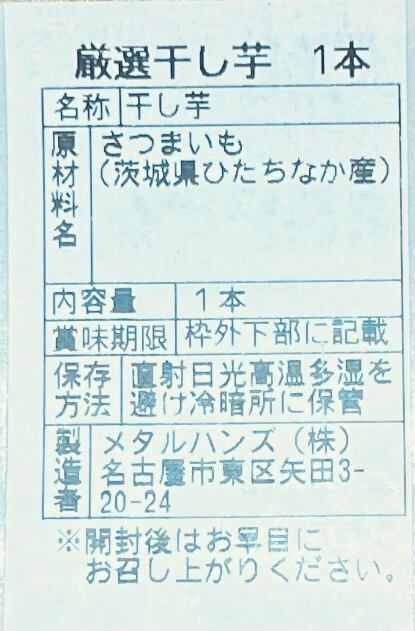 厳選干し芋　1本
名称 干し芋
原材料名 さつまいも
(茨城県ひたちなか産)
内容量 1本
賞味期限 枠外下部に記載
保存方法 直射日光高温多湿を
避け冷暗所に保管
製造者 メタルハンズ（株）
名古屋市東区矢田3-
20-24
※開封後はお早目に
お召し上がりください。